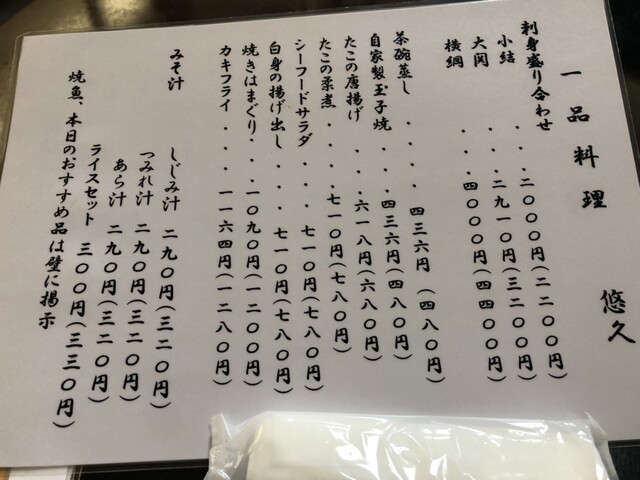 一品料理 悠久
刺身盛り合わせ
小結 ・・・二〇〇〇円(二二〇〇円)
大関 ・・・二九一〇円(三二〇〇円)
横綱 ・・・四〇〇〇円(四四〇〇円)
茶碗蒸し ・・・・四三六円 (四八〇円)
自家製玉子焼 ・・・四三六円(四八〇円)
たこの唐揚げ ・・・六一八円(六八〇円)
たこの柔煮 ・・・・七一〇円(七八〇円)
シーフードサラダ ・・・七一〇円(七八〇円)
白身の揚げ出し ・・・・七一〇円(七八〇円)
焼きはまぐり・・・一〇九〇円(一二〇〇円)
カキフライ ・・・・一一六四円(一二八〇円)
みそ汁
しじみ汁 二九〇円(三二〇円)
つみれ汁 二九〇円(三二〇円)
あら汁 二九〇円(三二〇円)
ライスセット 三〇〇円(三三〇円)
焼魚、本日のおすすめ品は壁に掲示